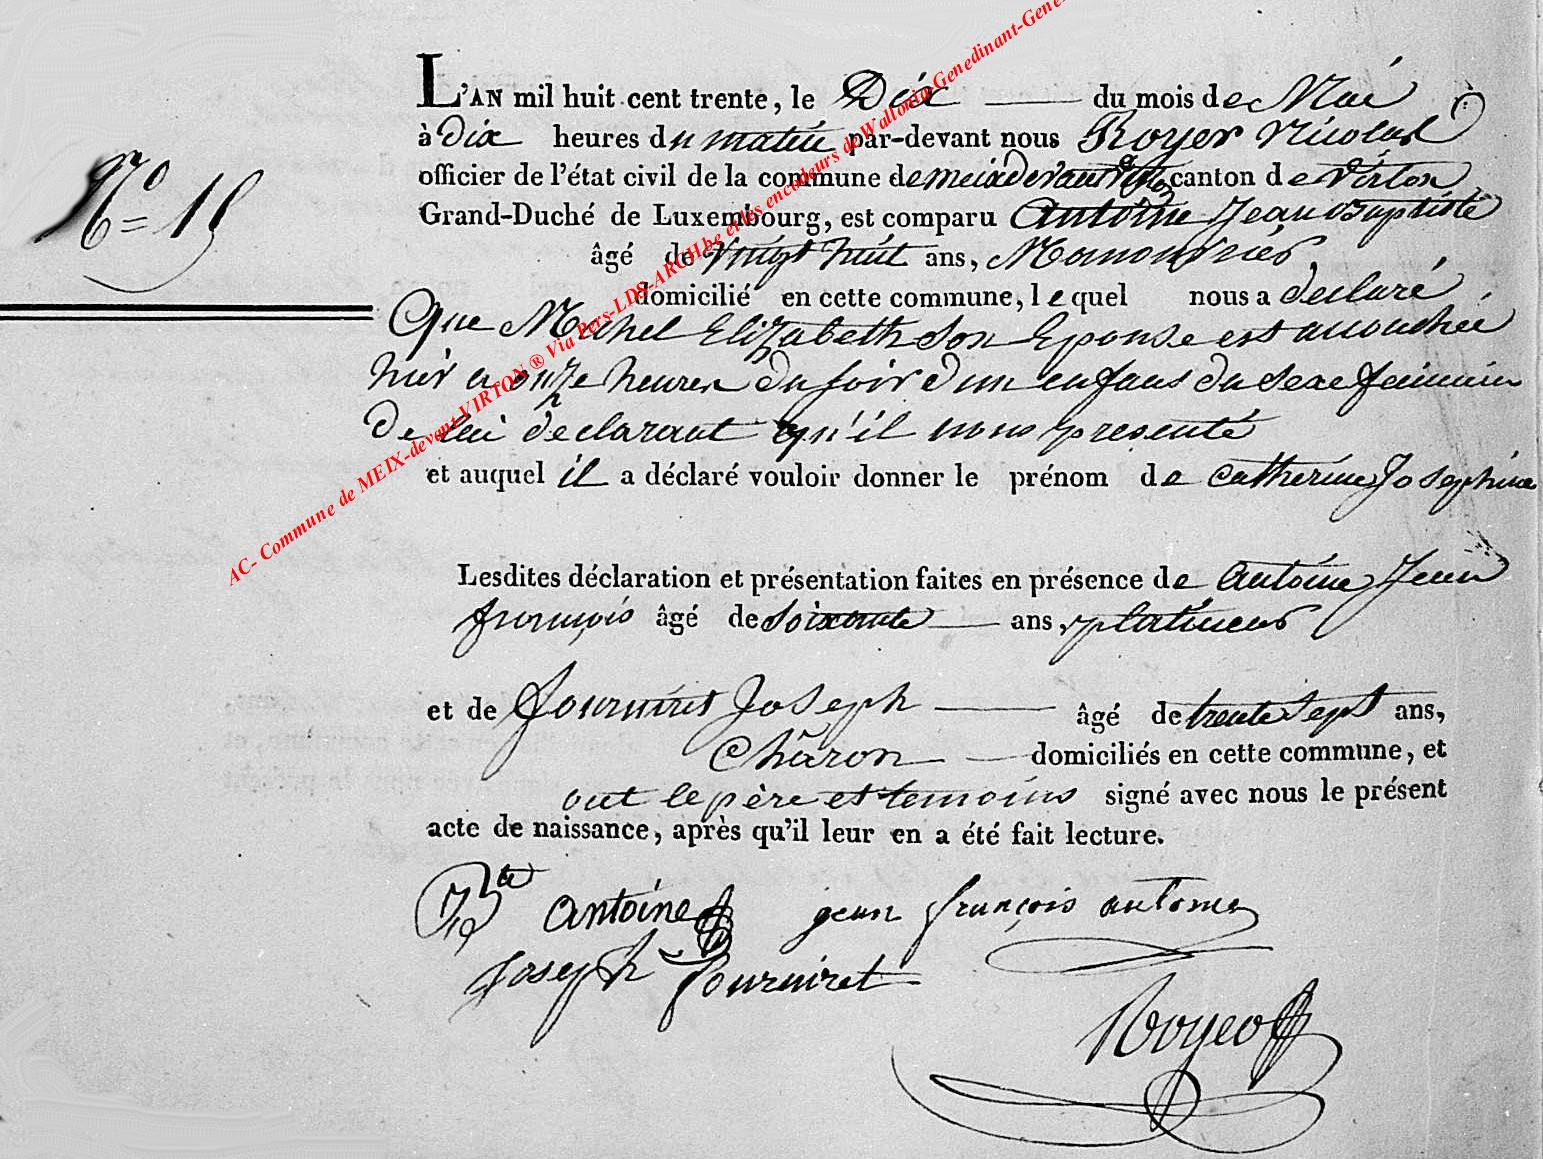 L'AN mil huit cent trente, le Dix du mois de Mai
à Dix heures du matin par-devant nous Royer Nicolas
N° 15
officier de l'état civil de la commune de meix devant Virton canton de Virton
Grand-Duché de Luxembourg, est comparu Antoine Jean Baptiste
âgé de Vingt huit ans, Manouvrier,
domicilié en cette commune, lequel nous a declaré
Que Michel Elizabeth son Epouse est accouchée
hier a onze heures du soir d'un enfans du sexe feminin
De lui declarant qu'il nous presenté
et auquel il a déclaré vouloir donner le prénom de Catherine Josephine
Lesdites déclaration et présentation faites en présence de Antoine Jean
françois âgé de soixante ans, platineur
et de fourniret Joseph âgé de trente sept ans,
Châron domiciliés en cette commune, et
ont le père et temoins signé avec nous le présent
acte de naissance, après qu'il leur en a été fait lecture.
Antoine jean françois antoine
Joseph fourniret
Royer
AC- Commune de MEIX-devant-VIRTON ® Via Pers-LDS-ARCH.be et les encodeurs de Wallonia-Genedinant-Gene